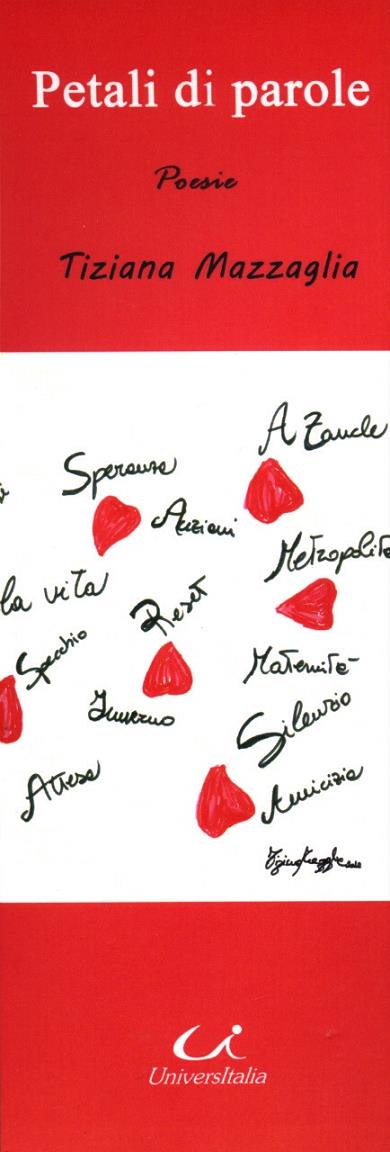 Petali di parole
Poesie
Tiziana Mazzaglia
A Zancle
Speranza
Anziani
Metropolita
la vita
Reset
Specchio
Maternità
Inverno
Silenzio
Attesa
Amicizia
UniversItalia